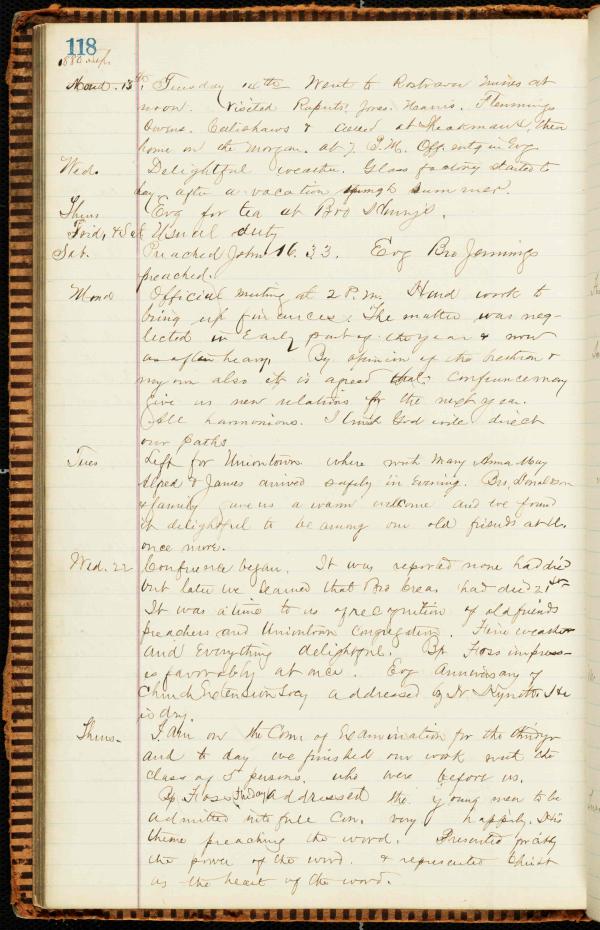 118
1880 Sept
13th. Tuesday 14th Went to Rostraver mines at
noon. Visited Ruperts, Jones. Harris. Flemmings
Owens. Calishaws & called at Sheakmans, then
home on the Morgan. at 7 P.M. Off. entg in Evg
Wed. Delightful weather. Glass factory started to
day after a vacation through summer.
Thurs Evg for tea at Bro
Frid, & Sat Usual duty
Sat. Preached John 16.33. Evg Bro Jennings
preached.
Mond Official meeting at 2 P.M. Hard work to
bring up finances. The matter was neg-
lected in Early part of the year & now
is often heavy. By opinion of the brethren &
my own also it is agreed that conference may
give us new relations for the next year.
All harmonious. I trust God will direct
our paths
Tues Left for Uniontown where with Mary Anna May
Alfred & James arrived safely in evening. Bro. Donaldson
& family gave us a warm welcome and we found
it delightful to be among our old friends at U.
once more.
Wed. 22 Conference began. It was reported none had died
but later we learned that Bro Creas had died 21st
It was a time to us of recognition of old friends
preachers and Uniontown congregation. Fine weather
and Everything delightful. Bp Foss impress-
es favorably at once. Evg Anniversary of
Church Extension Socy addressed by Dr Kynett. He
is dry.
Thurs- I am on the Com. of Examination for the third yr
and to day we finished our work with the
class of 5 persons. who were before us.
Bp Foss Thursday addressed the young men to be
admitted into full Con. very happily. His
theme preaching the word. Presented forcibly
the power of the word. & represented Christ
as the heart of the word.